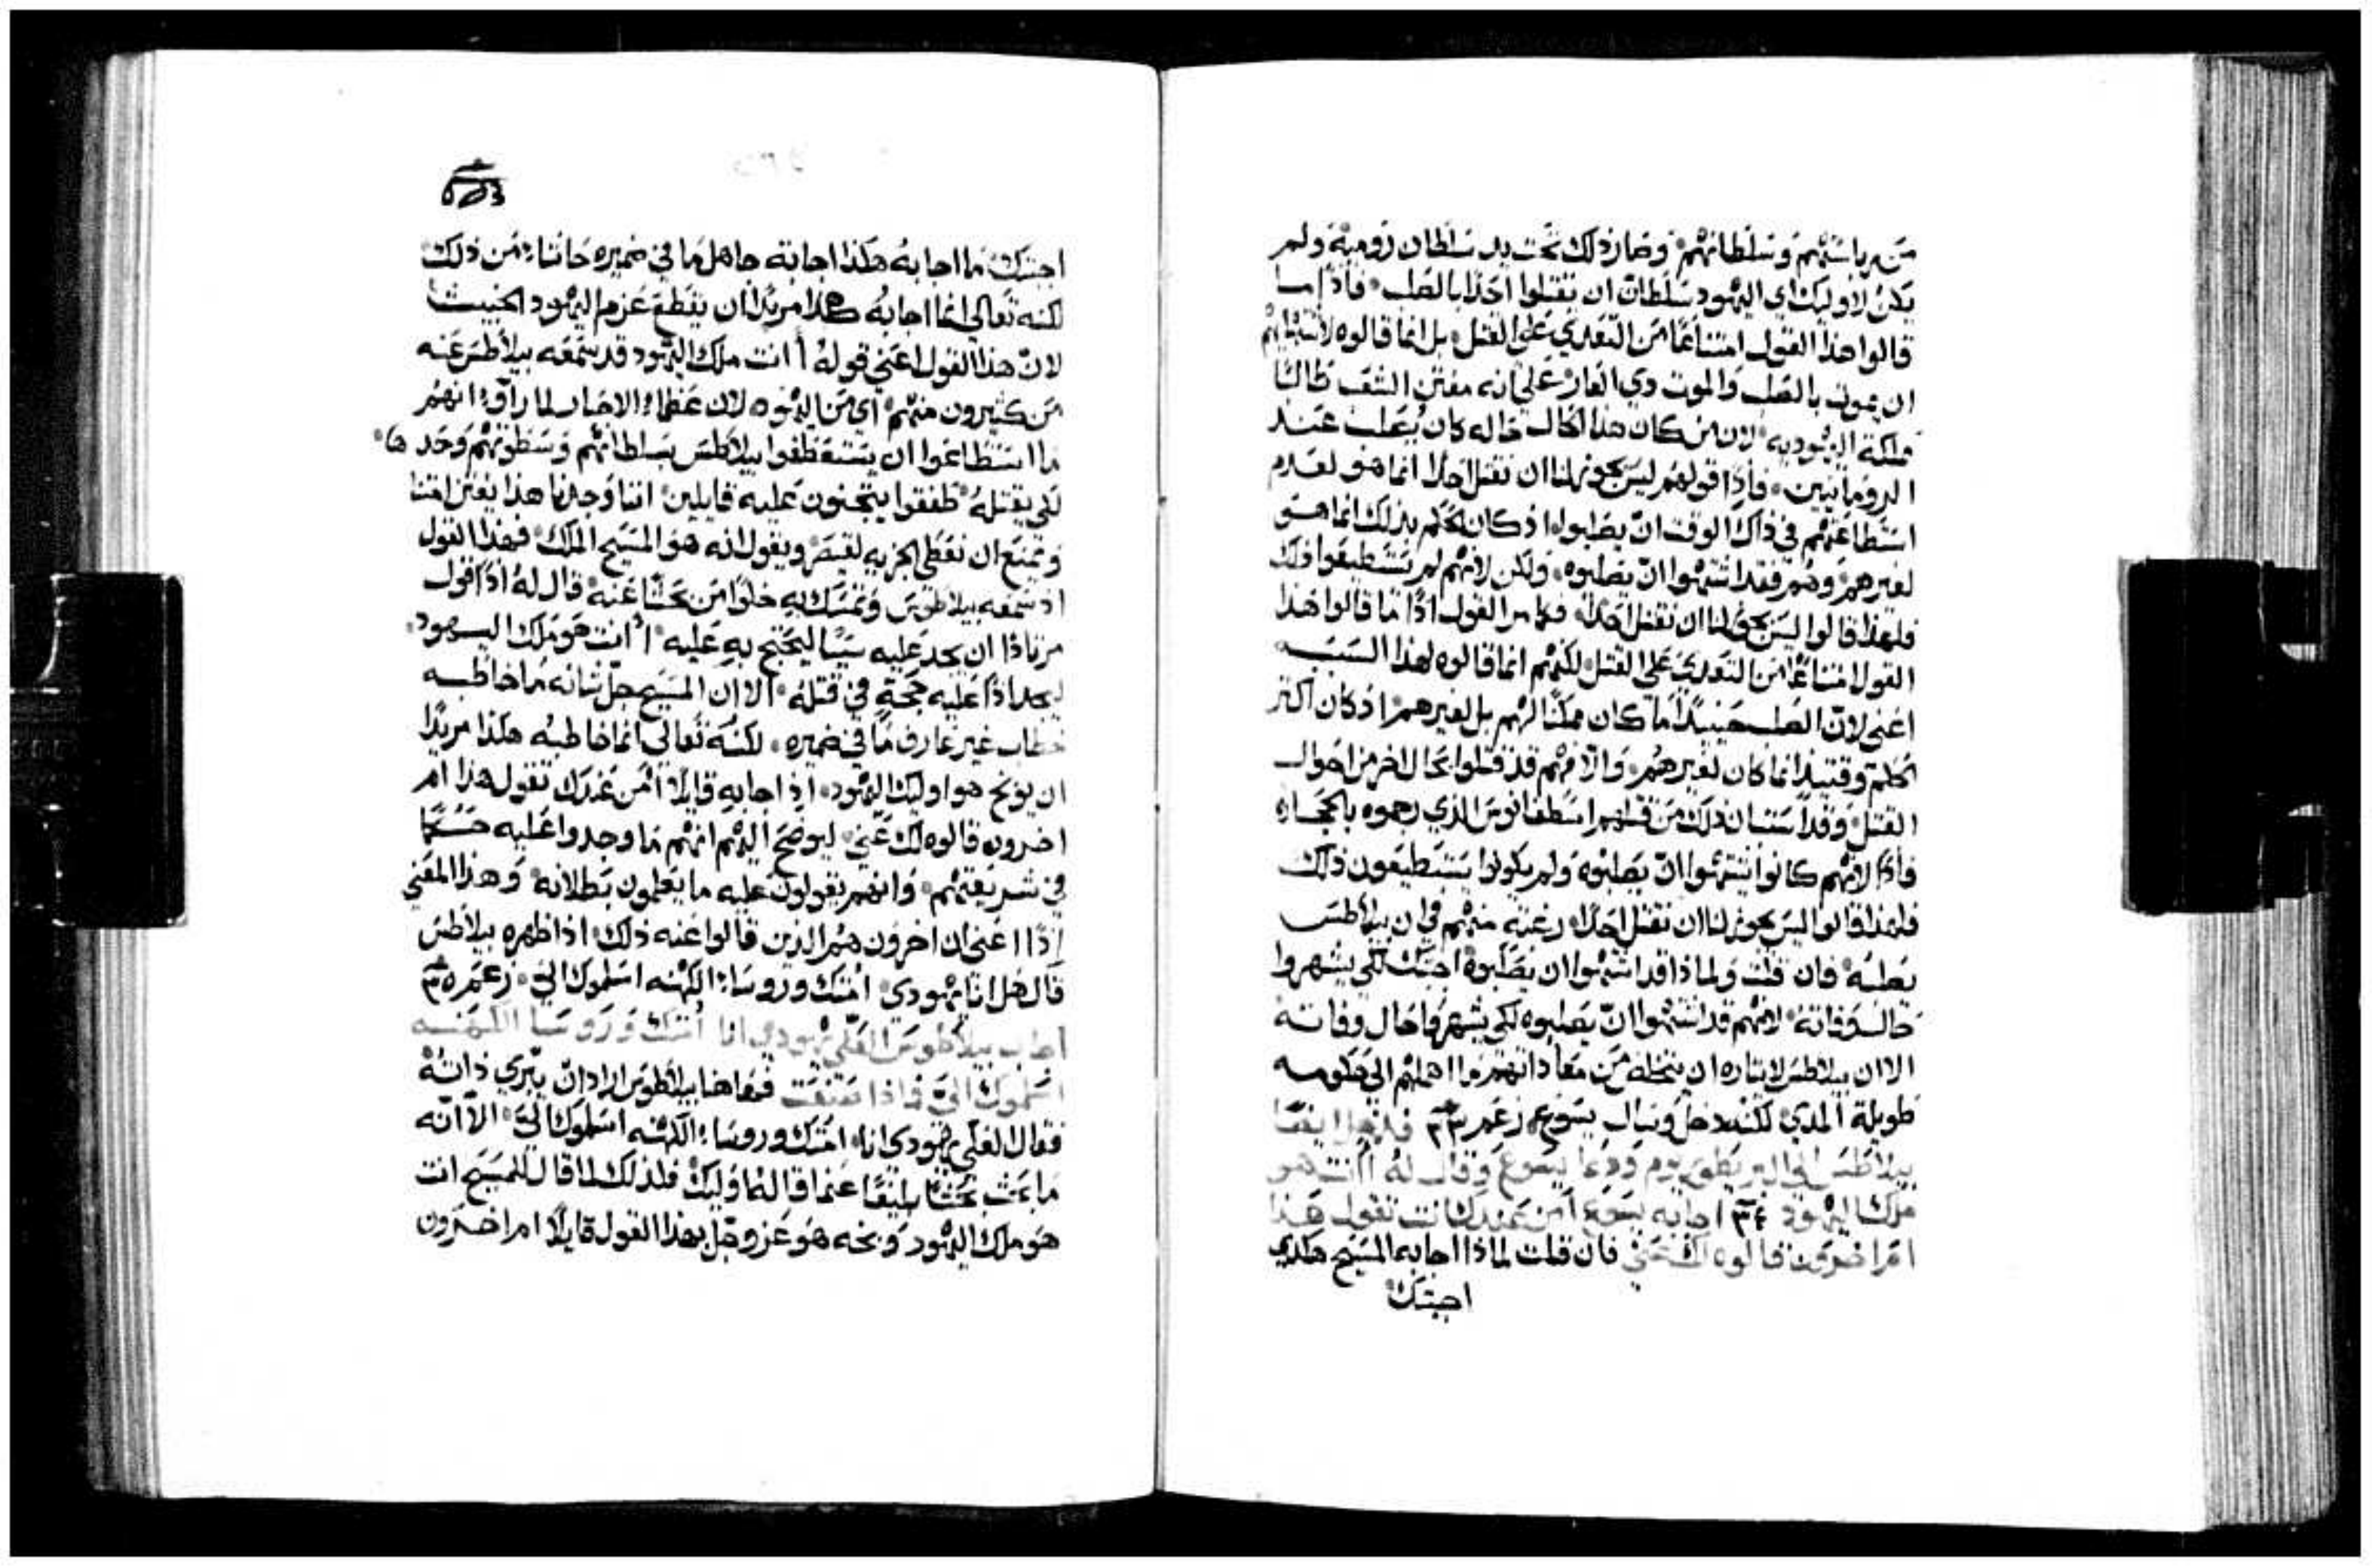 من رياستهم وسلطانهم وصار ذلك تحت يد سلطان رومية ولم
يكن لاوليك اي اليهود سلطان ان يقتلوا احدا بالصلب فاذا ما
قالوا هذا القول امتناعا من التعدي على القتل بل انما قالوه لاشتهايهم
ان يموت بالصلب والموت دي العار على انه مفتن الشعب طالبا
مملكة اليهودية لان من كان هذا الحال حاله كان يصلب عند
الرومانيين فاذا قولهم ليس يجوز لنا ان نقتل احدا انما هو لعدم
استطاعتهم في ذاك الوقت ان يصلبوا اذ كان الحكم بذلك انما هو
لغيرهم وهم فقد اشتهوا ان يصلبوه ولكن لانهم لم يستطيعوا ذلك
فلهذا قالوا ليس يحق لنا ان نقتل احدا فكما مر القول اذا ما قالوا هذا
القول امتناعا من التعدي على القتل لكنهم انما قالوه لهذا السبب
اعني لان الصلب حينيذ ما كان ممكنا لهم بل لغيرهم اذ كان اكثر
الحكم وقتيذ انما كان لغيرهم والا فهم قد قتلوا بحال اخر من احوال
القتل وقد استبان ذلك من قتلهم اسطفانوس الذي رجموه بالحجاره
فاذا لانهم كانوا يشتهوا ان يصلبوه ولم يكونوا يستطيعون ذلك
فلهذا قالوا ليس يجوز لنا ان نقتل احدا رغبة منهم في ان بيلاطس
يصلبه فان قلت ولماذا قد اشتهوا ان يصلبوه اجبتك لكي يشهروا
حال وفاته لانهم قد اشتهوا ان يصلبوه لكي يشهروا حال وفاته
الا ان بيلاطس لايتاره ان يخلصه من معاداتهم ما اهملهم الى حكومه
طويلة المدي لكنه دخل وسال يسوع زعم ٣٣ فدخل ايضا
بيلاطس الى البريطوريوم ودعا يسوع وقال له اانت هو
ملك اليهود ٣٤ اجابه يسوع امن عندك انت تقول هذا
ام اخرون قالوه لك عني فان قلت لماذا اجابه المسيح هكذي
اجبتك
اجبتك ما اجابه هكذا اجابة جاهل ما في ضميره حاشا من ذلك
لكنه تعالي انما اجابه هكذا مريدا ان يقطع عزم اليهود الخبيث
لان هذا القول اعني قوله اانت ملك اليهود قد سمعه بيلاطس عنه
من كثيرون منهم اي من اليهود لان عظماء الاحبار لما راوا انهم
ما استطاعوا ان يستعطفوا بيلاطس بسلطانهم وسطوتهم وحدها
لكي يقتله طفقوا يتجنون عليه قايلين اننا وجدنا هذا يفتن امتنا
ويمنع ان نعطي الجزيه لقيصر ويقول انه هو المسيح الملك فهذا القول
اذ سمعه بيلاطوس وتمسك به خلوا من بحثا عنه قال له اذا قول
مرتادا ان يجد عليه سببا ليحتج به عليه اانت هو ملك اليهود
ليجد اذا عليه حجة في قتله الا ان المسيح جل شانه ما خاطبه
خطاب غير عارف ما في ضميره لكنه تعالي انما خاطبه هكذا مريدا
ان يوبخ هو اوليك اليهود اذ اجابه قايلا امن عندك تقول هذا ام
اخرون قالوه لك عني ليوضح اليهم انهم ما وجدوا عليه حكما
في شريعتهم وانهم يقولون عليه ما يعلمون بطلانه وهذا المعني
اذا اعني ان اخرون هم الذين قالوا عنه ذلك اذا ظهره بيلاطس
قال هل انا يهودي امتك وروساء الكهنه اسلموك الي زعم ٣٥
اجاب بيلاطوس العلي يهودي انا امتك وروسا الكهنه
اسلموك الي فماذا صنعت فها هنا بيلاطوس اراد ان يبري ذاته
فقال العلي يهودي انا امتك وروساء الكهنه اسلموك الي الا انه
ما بحث بحثا بليغا عما قاله اوليك فلذلك لما قال للمسيح انت
هو ملك اليهود وبخه هو عز وجل بهذا القول قايلا ام اخرون